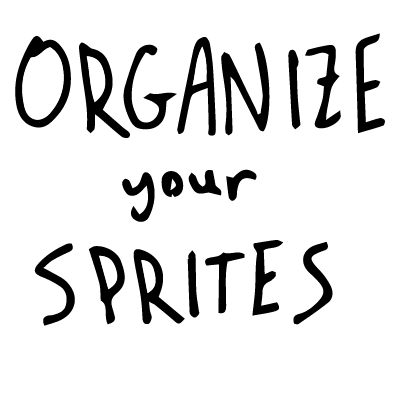 ORGANIZE
your
SPRITES